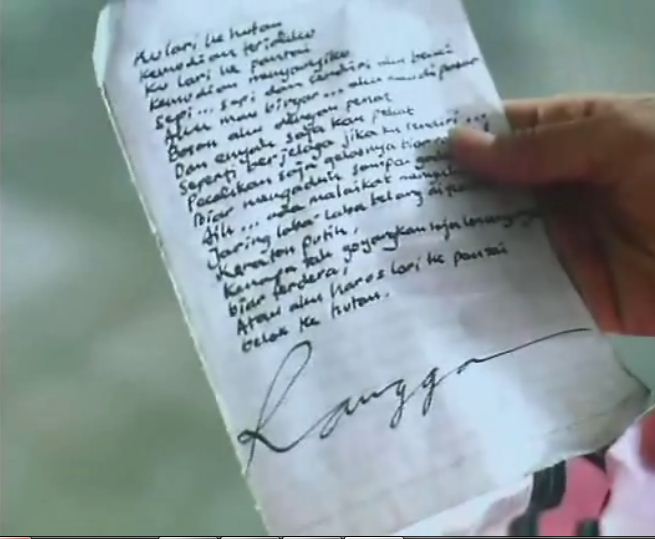 Ku lari ke hutan
Kemudian teriakku
Ku lari ke pantai
Kemudian menyanyiku
Sepi... sepi dan sendiri aku benci
Aku mau bingar... aku mau di pasar
Bosan aku dengan penat
Dan enyah saja kau pekat
Seperti berjelaga jika ku sendiri...
Pecahkan saja gelasnya biar
Biar mengaduh sampai
Aih... ada malaikat
Jaring laba-laba belang di
Keraton putih,
Kenapa tak goyangkan saja loncengnya
biar terdera,
Atau aku harus lari ke pantai
belok ke hutan.
Rangga